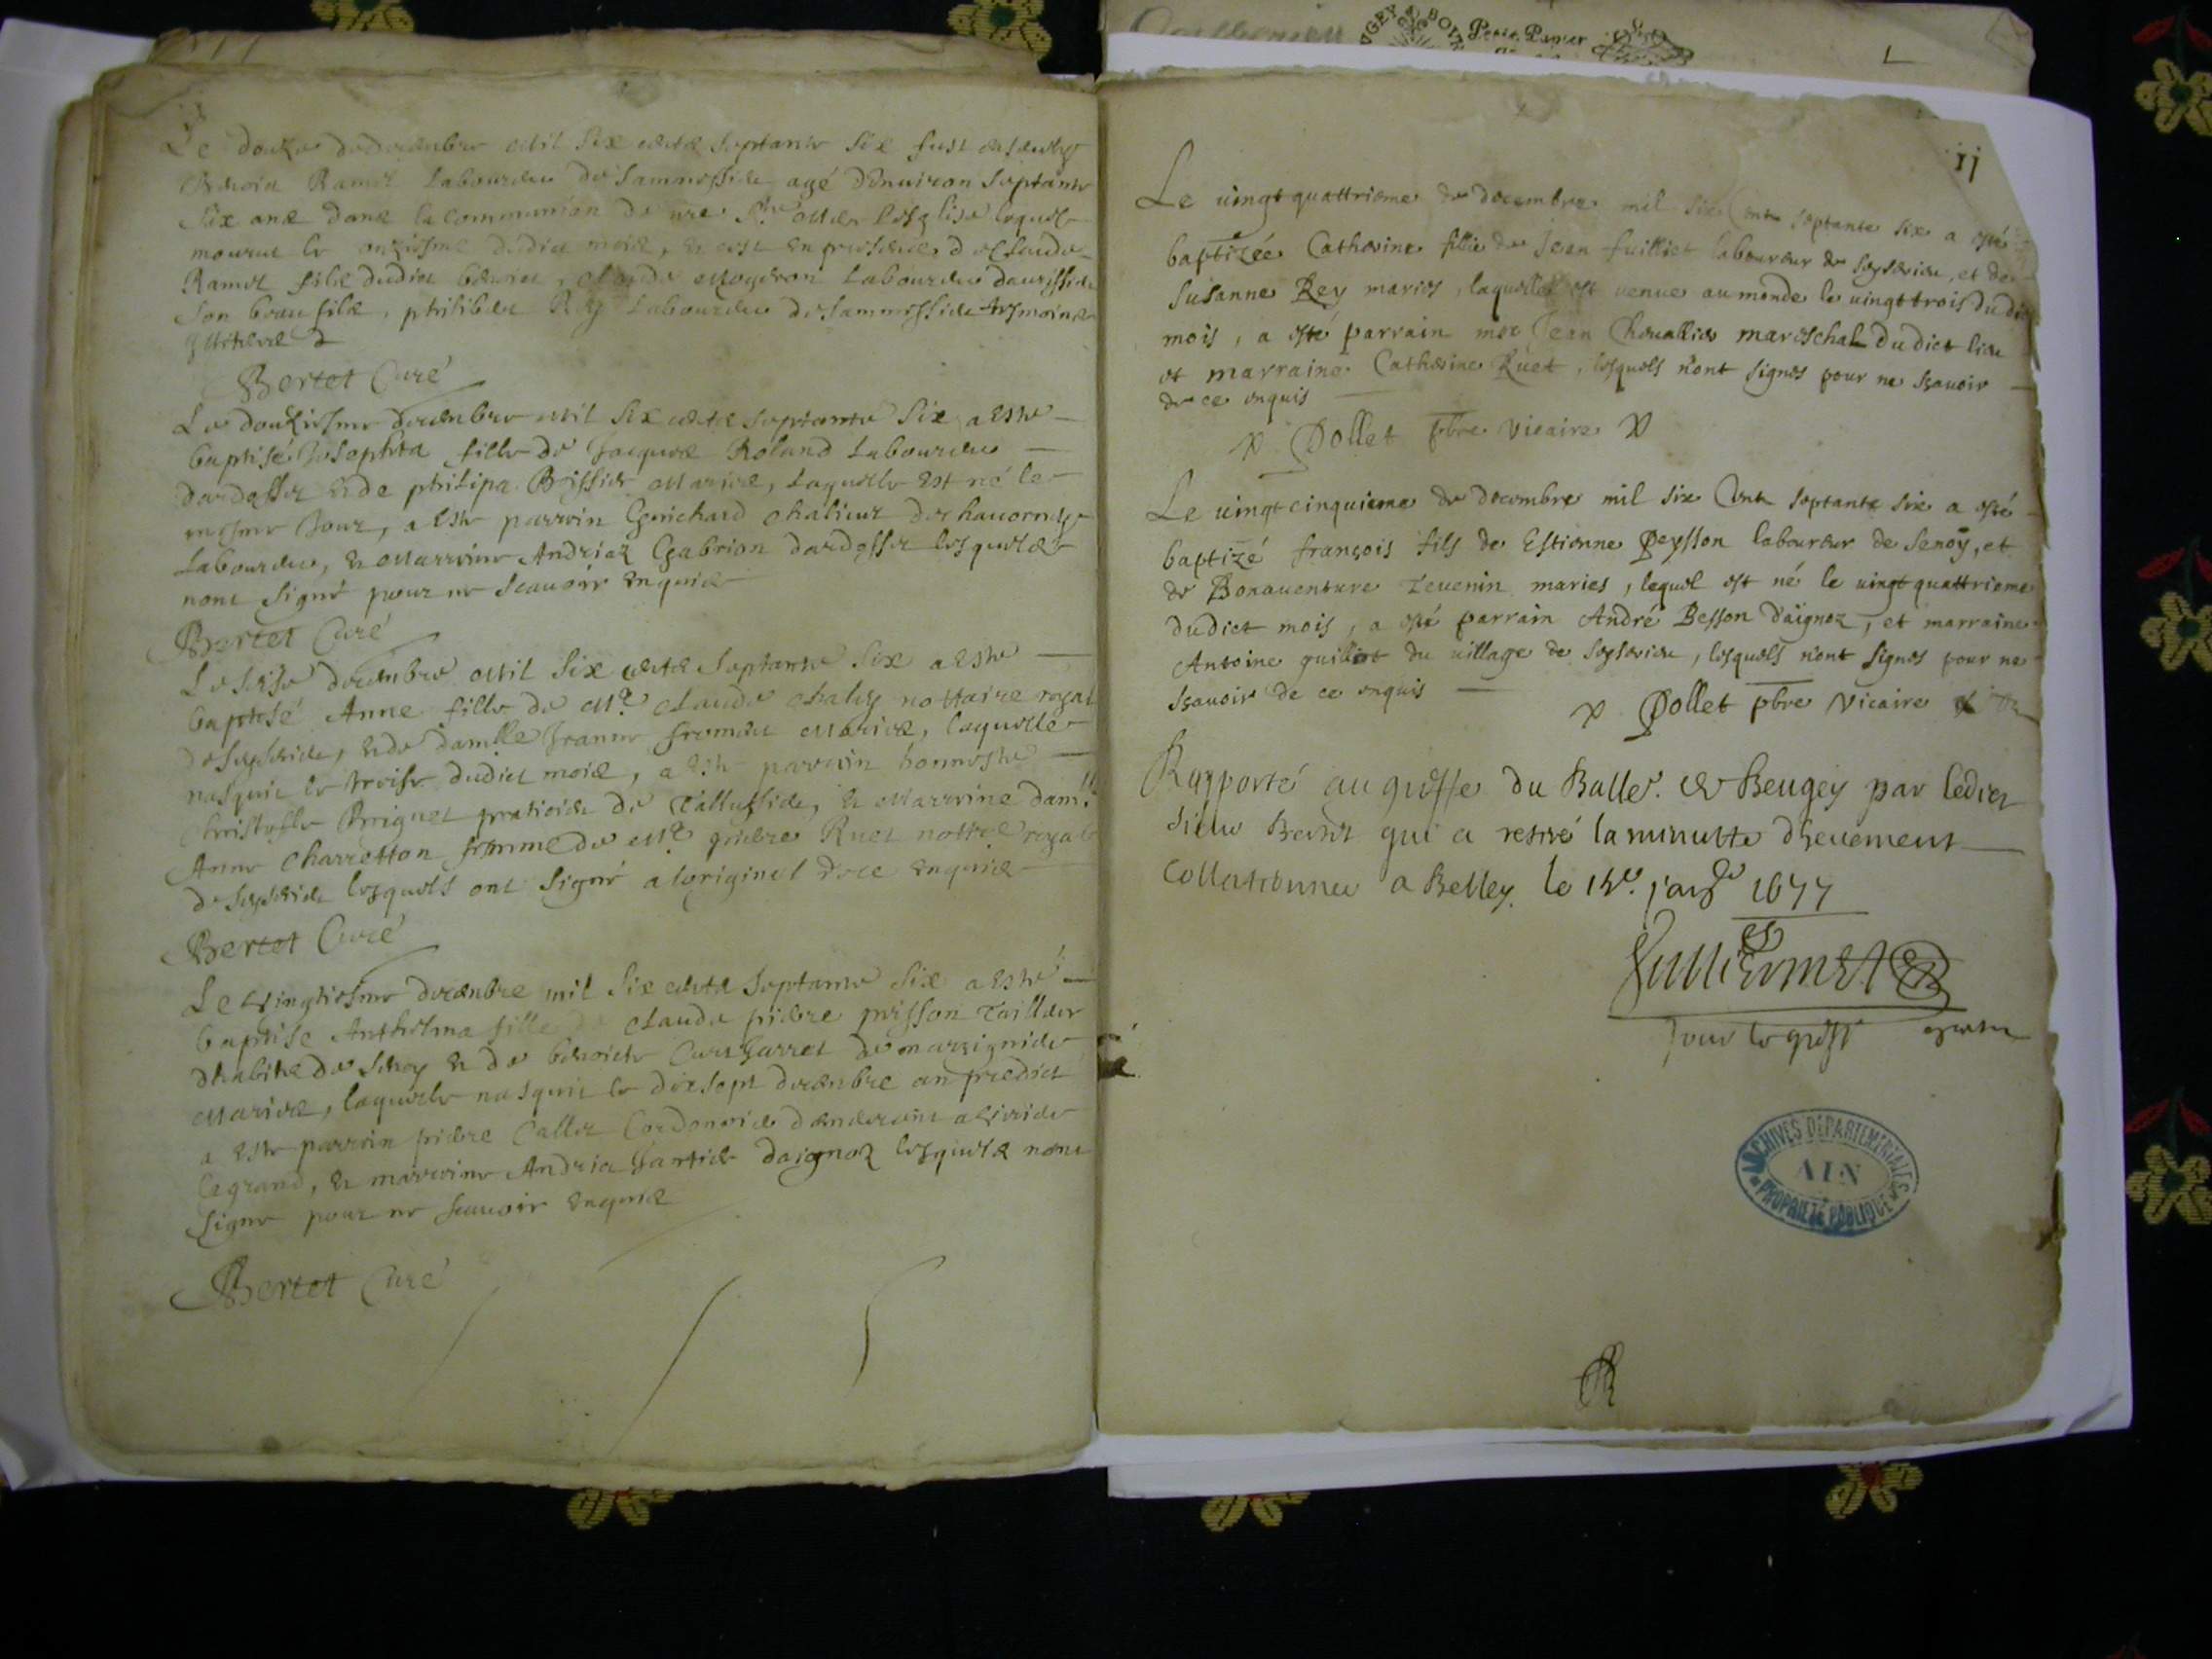 Le douze de decembre mil six cents septante six fust ensevely
Benoit Ramel Laboureur de agé d'environ septante
six ans dans la communion de nre Ste Mere lesglise lequel
mourut le onziesme dudict mois, en presence de Claude
Ramel fils dudict benoict, Claude Mogeron Laboureur
son beau fils, philibert Rey Laboureur de tesmoins

Bertet Curé
Le douziesme decembre mil six cents septante six a esté
baptisé Josephta fille de Jacques Roland Laboureur
dardosset et de philipa Brissier Mariés, laquelle est né le
mesme Jour, a esté parrin Guichard
Laboureur, et Marrine Andriaz Gabrion dardosset lesquels
nont signé pour ne scavoir enquis
Bertet Curé
Le seise decembre mil six cents septante six a esté
baptisé Anne fille de Me Claude Chaley nottaire royal
de Seyserieu, et de damlle Jeanne froment Mariés, laquelle
nasquit le treise dudict mois, a esté parrin honneste
Christofle Briguet praticien de Tallissieu, et Marrine damlle
Anne Charretton femme de Me pierre Ruet nottre royal
de Seyserieu lesquels ont signé a loriginel de ce enquis
Bertet Curé
Le vingtiesme decembre mil six cents septante six a esté
baptise Anthelma fille de Claude pierre prisson Tailleur
dhabits de Senoy et de benoicte de marignieu
Mariés, laquelle nasquit le dixsept decembre an predict
a esté parrin pierre Callet Cordonnier a virieu
le grand, et marrine Andria daignoz lesquels nont
signe pour ne scavoir enquis
Bertet Curé
11
Le vingt quattrieme de decembre mil six Cents septante six a esté
baptizée Catherine fillie de Jean fuilliet laboureur de Seyserieu, et de
Susanne Rey mariés, laquelle est venue au monde le vingt trois du dit
mois, a esté parrain me Jean Chevallier mareschal du dict lieu
et marraine Catherine Ruet, lesquels n'ont signés pour ne sçavoir
de ce enquis
Dollet pbre Vicaire
Le vingt cinquieme de decembre mil six Cents septante six a esté
baptizé françois fils de Estienne Peysson laboureur de Senoy, et
de Bonaventure Tevenin mariés, lequel est né le vingt quattrieme
dudict mois, a esté parrain André Besson d'aignoz, et marraine
Antoine guilliot du village de Seyserieu, lesquels n'ont signés pour ne
sçavoir de ce enquis
Dollet pbre Vicaire
Rapporté au greffe du Balle. de Beugey par ledict
Sieur Bertet qui a retiré la minutte
Collationnee a Belley. le janvr 1677
Pour le greff
ARCHIVES DÉPARTEMENTALES
AIN
PROPRIÉTÉ PUBLIQUE